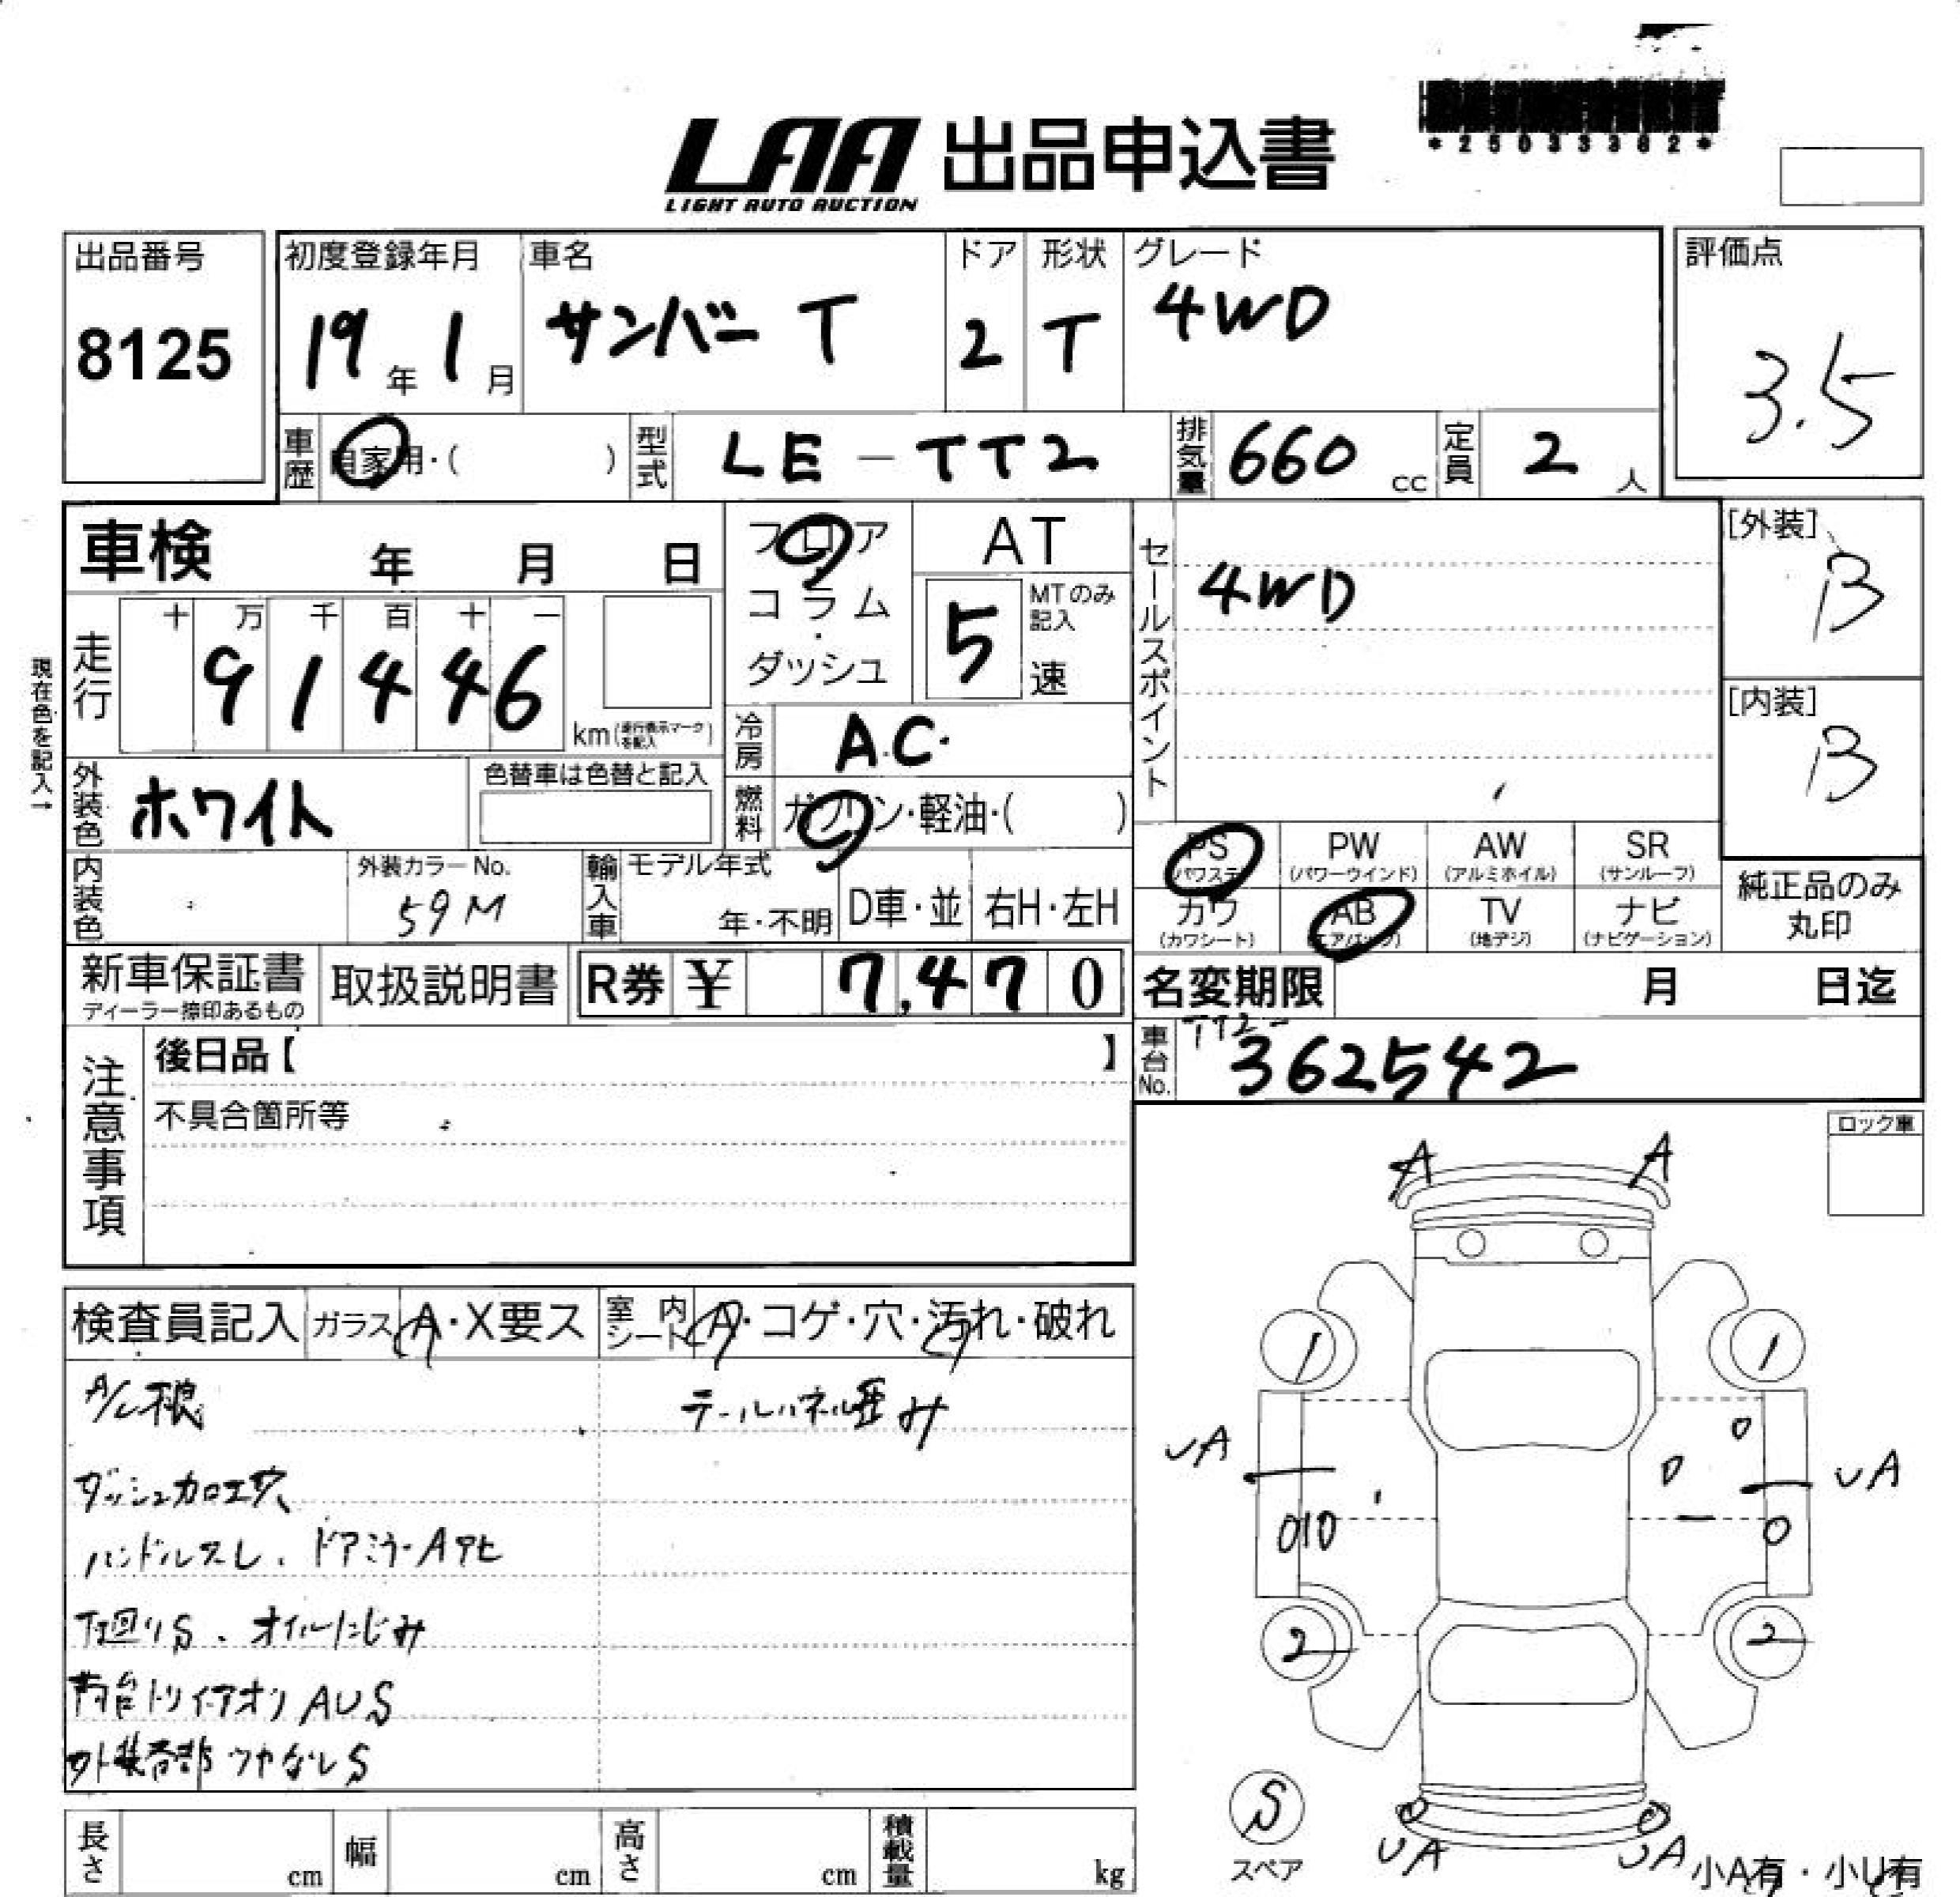 *25033362*
LAA 出品申込書
LIGHT AUTO AUCTION
出品番号
8125
初度登録年月
19年 1月
車名
サンバー T
ドア
2
形状
T
グレード
4WD
評価点
3.5
車歴
自家用・( )
型式
LE-TT2
排気量
660 cc
定員
2 人
車検 年 月 日
フロア
・
コラム
・
ダッシュ
AT
5
MTのみ
記入
速
セールスポイント
4WD
[外装]
B
[内装]
B
現在色を記入→
走行
十 万 千 百 十 一
9 1 4 4 6
km(走行表示マークを記入)
冷房
A.C.
外装色
ホワイト
色替車は色替と記入
燃料
ガソリン・軽油・( )
PS
(パワステ)
PW
(パワーウインド)
AW
(アルミホイル)
SR
(サンルーフ)
カワ
(カワシート)
AB
(エアバック)
TV
(地デジ)
ナビ
(ナビゲーション)
純正品のみ
丸印
内装色
外装カラーNo.
59M
輸入車
モデル年式
年・不明
D車・並
右H・左H
新車保証書
ディーラー捺印あるもの
取扱説明書
R券 ¥ 7,470
名変期限 月 日迄
車台No.
TT2-
362542
注意事項
後日品【 】
不具合箇所等
ロック車
A A
検査員記入
ガラス
A・X要ス
室内
シート
A・コゲ・穴・汚れ・破れ
A/C根
テールパネル歪み
ダッシュ加工穴
ハンドルスレ、ドアミラーA
下廻りS、オイルにじみ
荷台トリイアオリ AUS
外装各部ツヤなしS
1 1
UA UA
010 0
2 2
S
スペア
UA UA
小A有・小U有
長さ cm
幅 cm
高さ cm
積載量 kg